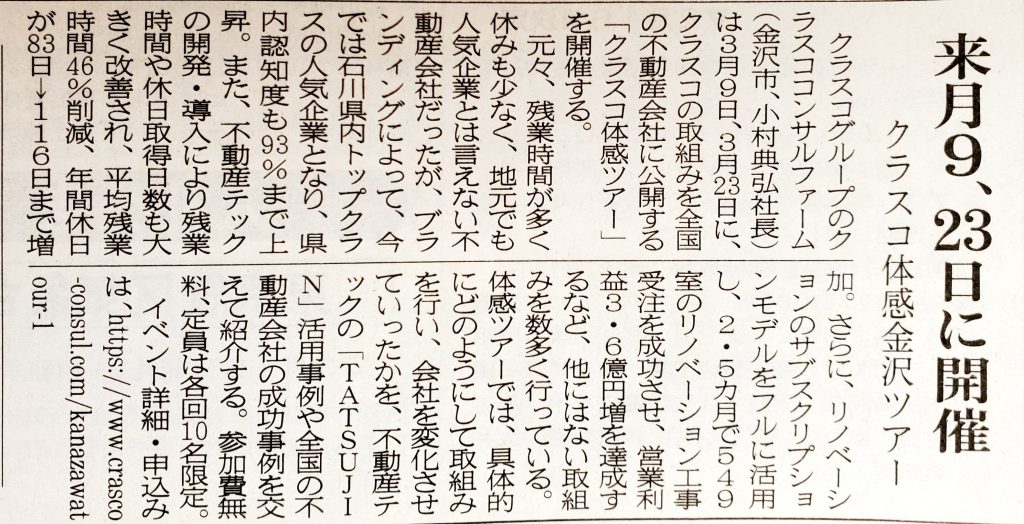 来月9、23日に開催
クラスコ体感金沢ツアー
クラスコグループのク
ラスココンサルファーム
（金沢市、小村典弘社長）
は3月9日、3月23日に、
クラスコの取組みを全国
の不動産会社に公開する
「クラスコ体感ツアー」
を開催する。
元々、残業時間が多く
休みも少なく、地元でも
人気企業とは言えない不
動産会社だったが、ブラ
ンディングによって、今
では石川県内トップクラ
スの人気企業となり、県
内認知度も93％まで上
昇。また、不動産テック
の開発・導入により残業
時間や休日取得日数も大
きく改善され、平均残業
時間46％削減、年間休日
が83日→116日まで増
加。さらに、リノベーシ
ョンのサブスクリプショ
ンモデルをフルに活用
し、2・5カ月で549
室のリノベーション工事
受注を成功させ、営業利
益3・6億円増を達成す
るなど、他にはない取組
みを数多く行っている。
体感ツアーでは、具体的
にどのようにして取組み
を行い、会社を変化させ
ていったかを、不動産テ
ックの「TATSUJI
N」活用事例や全国の不
動産会社の成功事例を交
えて紹介する。参加費無
料、定員は各回10名限定。
イベント詳細・申込み
は、https://www.crasco
-consul.com/kanazawat
our-1